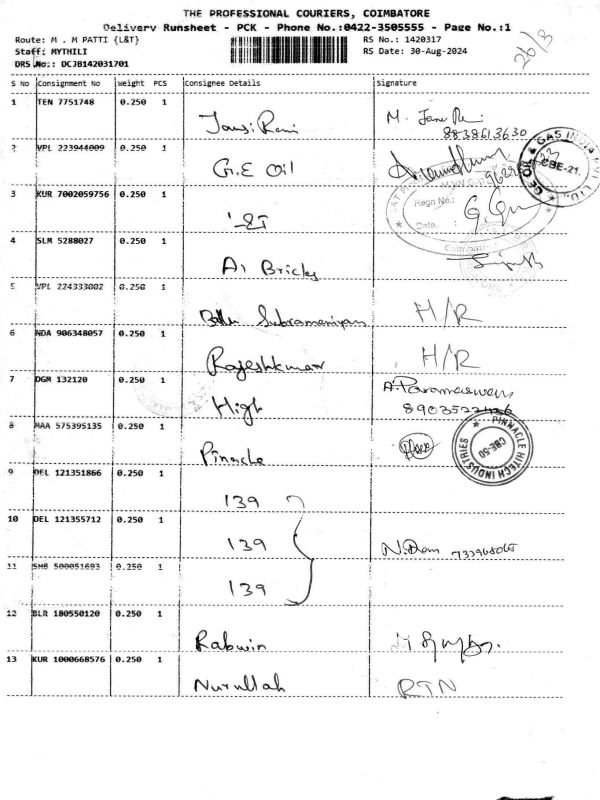 THE PROFESSIONAL COURIERS, COIMBATORE
Delivery Runsheet - PCK - Phone No.:0422-3505555 - Page No.:1
Route: M . M PATTI {L&T}
RS No.: 1420317
Staff: MYTHILI
RS Date: 30-Aug-2024
DRS No.: DCJB142031701
26/3
S No Consignment No Weight PCS Consignee Details Signature
1 TEN 7751748 0.250 1 Jansi Rani
8838613630
2 VPL 223944009 0.250 1 G.E Oil
GE OIL & GAS INDIA PVT. LTD.
CBE-21.
3 KUR 7002059756 0.250 1 L&T
Regn No.:
Date. :
Coimbatore
4 SLM 5288027 0.250 1 A1 Bricks
5 VPL 224333002 0.250 1 Subramaniyam H/R
6 NDA 906348057 0.250 1 Rajeshkumar H/R
7 DGM 132120 0.250 1 High A. Paramaswary
8 MAA 575395135 0.250 1 Pinacle
PINNACLE HITECH INDUSTRIES
CBE-50
9 DEL 121351866 0.250 1 139
10 DEL 121355712 0.250 1 139
11 SHB 500051693 0.250 1 139
12 BLR 180550120 0.250 1 Rabwin
13 KUR 1000668576 0.250 1 Nurullah RTN